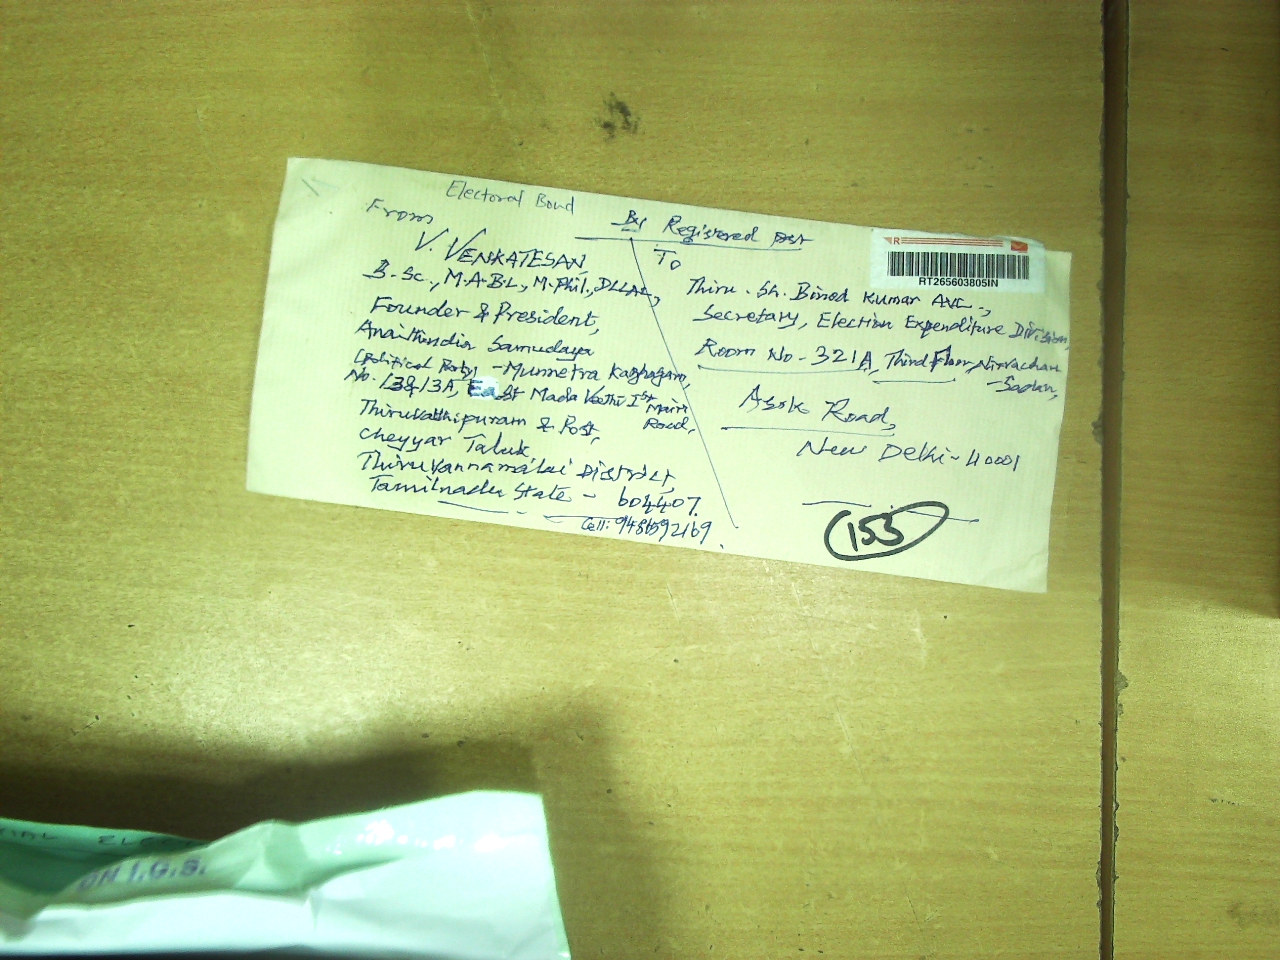 Electoral Bond
By Registered Post
From
V. VENKATESAN,
B.Sc., M.A.B.L., M.Phil., DLLAL,
Founder & President,
Anaithindia Samudaya
(Political Party) - Munnetra Kazhagam,
No. 13&13A, East Mada Veethi Ist Main
Road,
Thiruvathipuram & Post,
Cheyyar Taluk,
Thiruvannamalai District,
Tamilnadu State - 604407.
Cell: 9486592169.
To
Thiru. Sh. Binod Kumar
Secretary, Election Expenditure Division,
Room No - 321A, Third Floor, Nirvachan
- Sadan,
Asok Road,
New Delhi - 110001
155
R
RT265603805IN
ELEC
ON I.G.S.